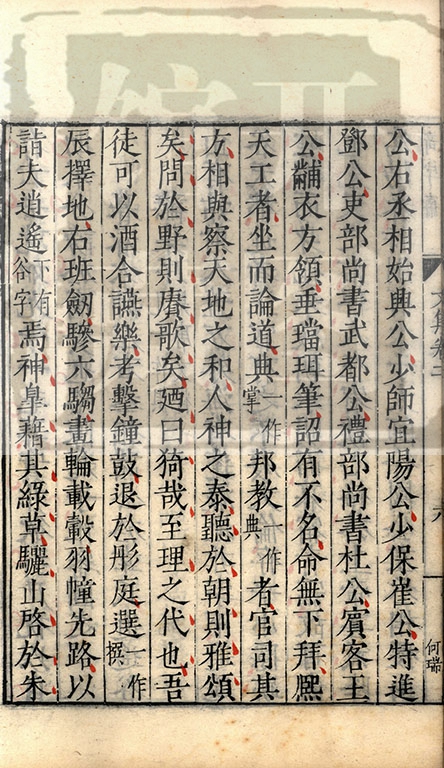 公右丞相始興公少師宜陽公少保崔公特進
鄧公吏部尚書武都公禮部尚書杜公賓客王
公黼衣方領垂璫珥筆詔有不名命無下拜熈
天工者坐而論道典一作掌邦教一作典者官司其
方相與察天地之和人神之泰聽於朝則雅頌
矣問於野則賡歌矣廼曰猗哉至理之代也吾
徒可以酒合讌樂考擊鐘鼓退於彤庭選一作撰
辰擇地右班劔驂六騶畫輪載轂羽幢先路以
詣夫逍遙下有谷字焉神皐藉其綠草驪山啓於朱
何瑞